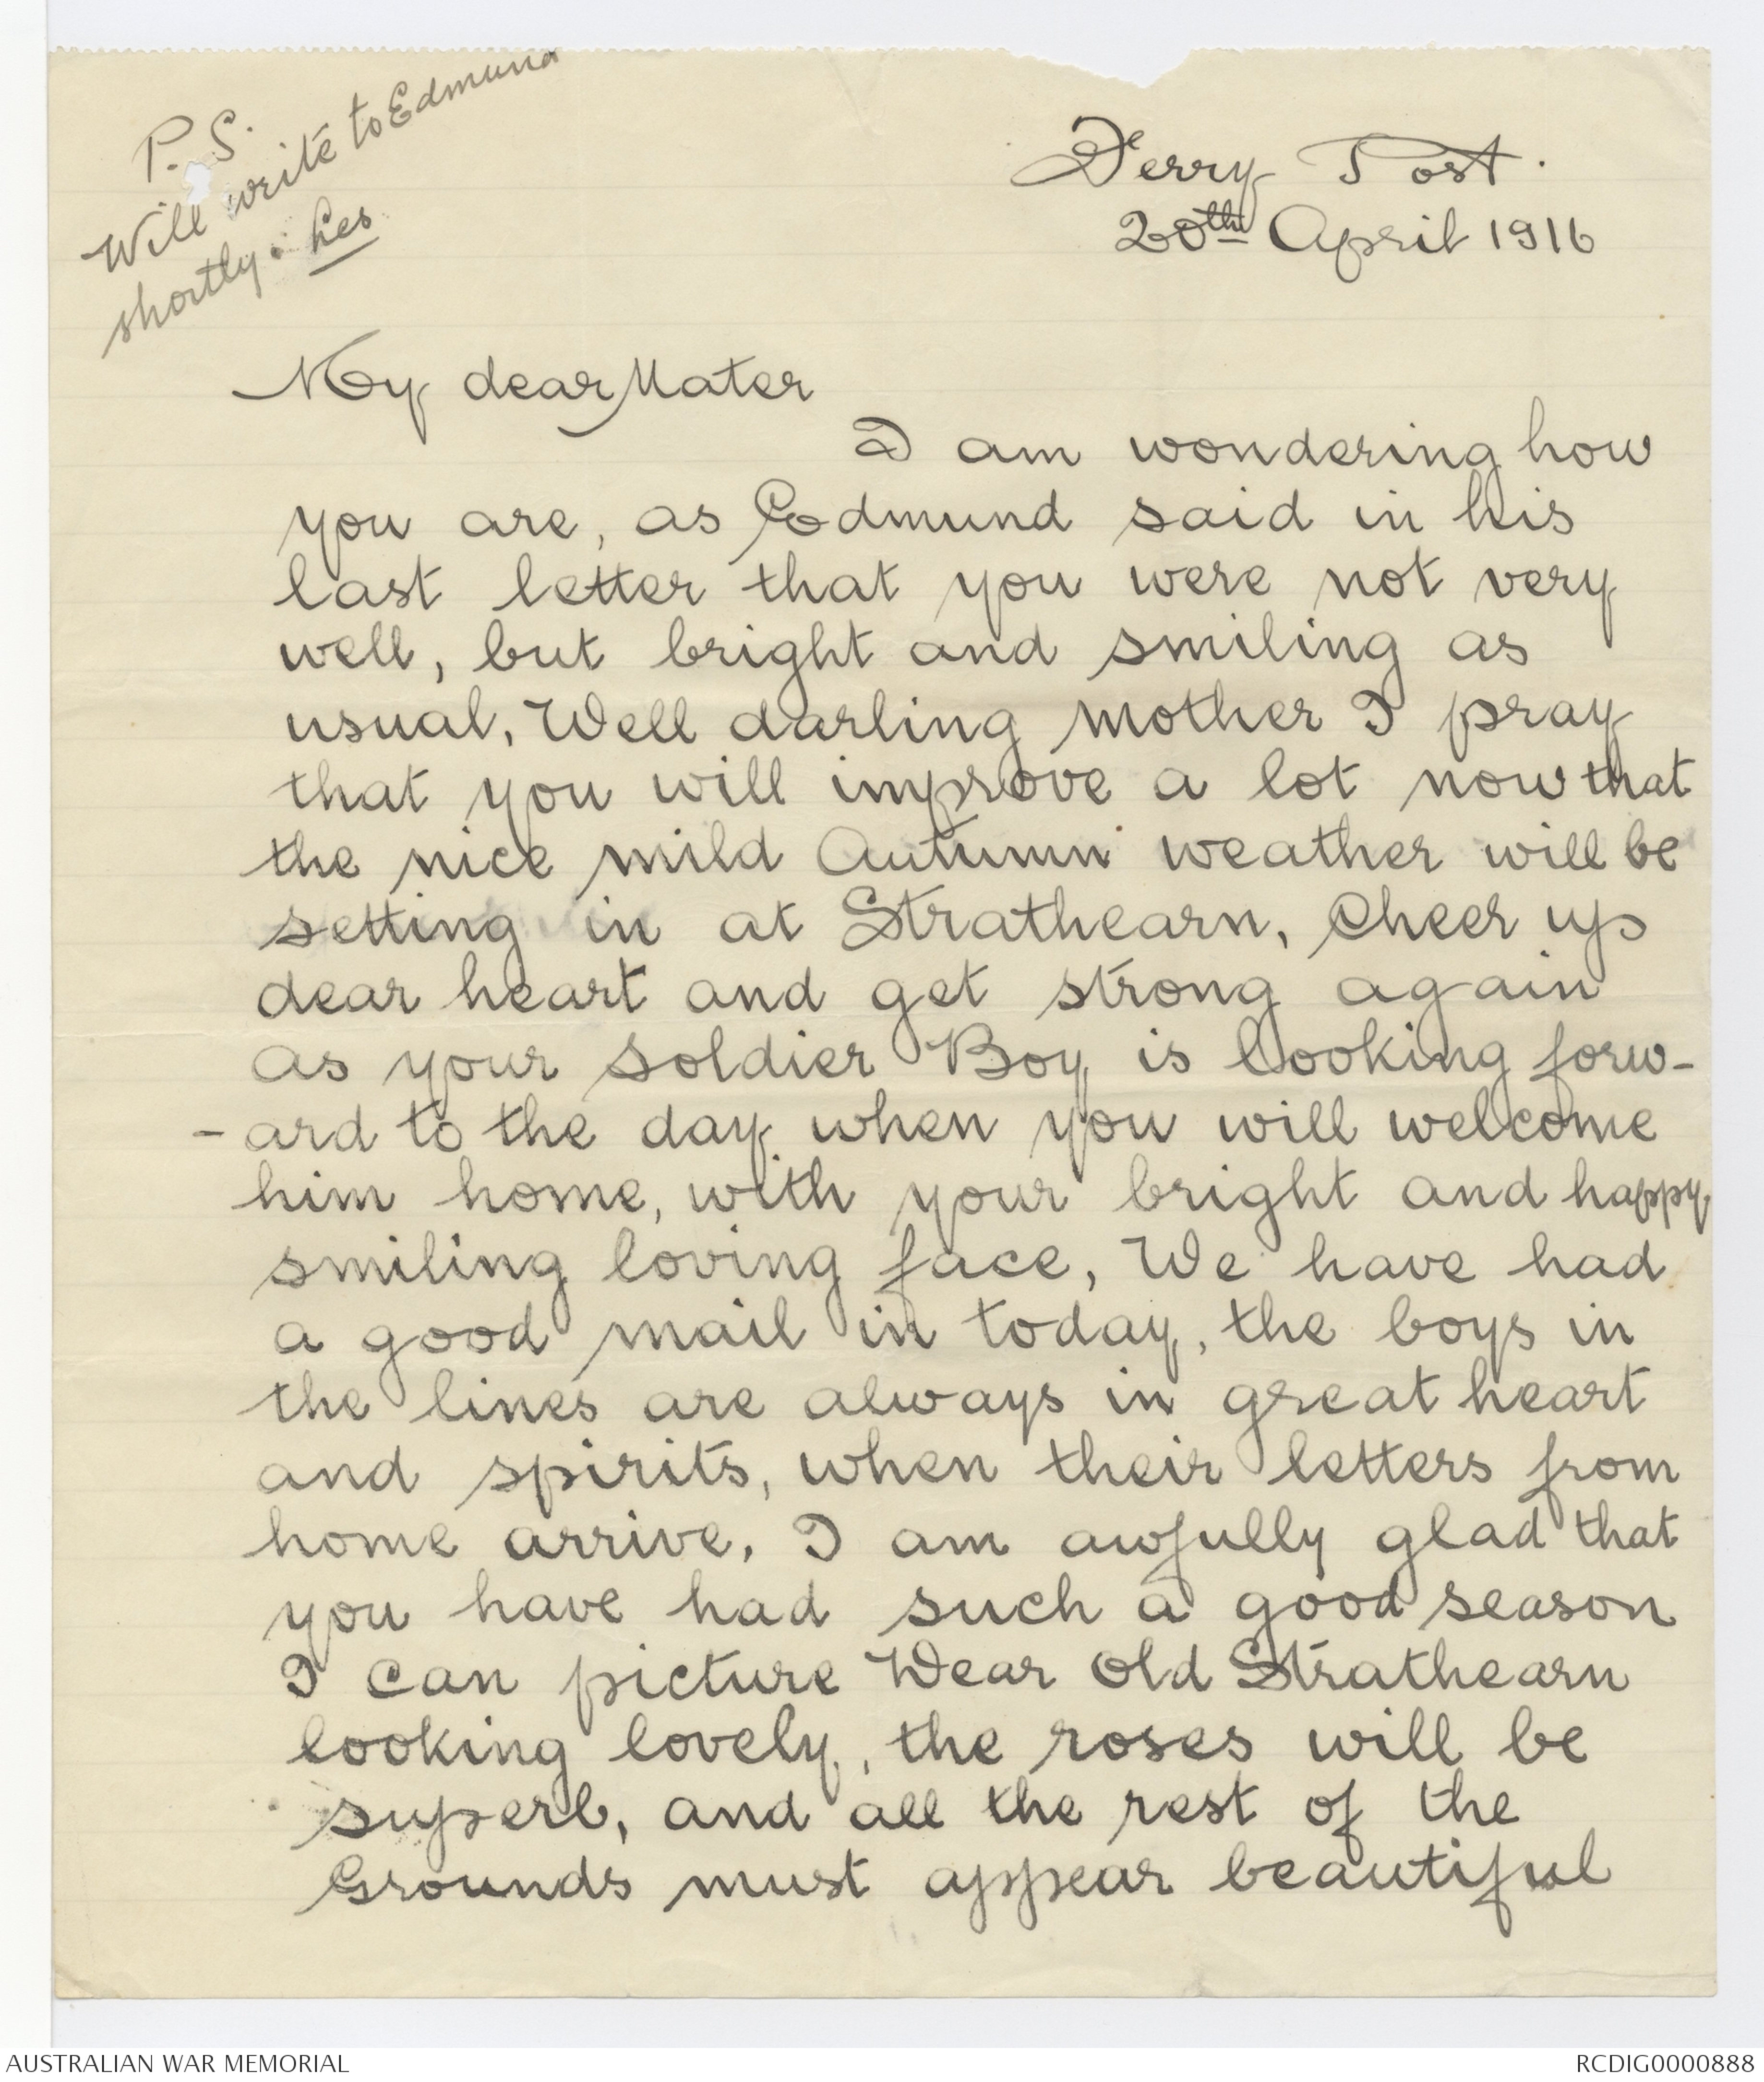 P.S.
Will write to Edmund
shortly. Les
Ferry Post.
20th April 1916
My dear Mater
I am wondering how
you are, as Edmund said in his
last letter that you were not very
well, but bright and smiling as
usual, Well darling mother I pray
that you will improve a lot now that
the nice mild Autumn weather will be
setting in at Strathearn, Cheer up
dear heart and get strong again
as your soldier Boy is looking forw-
-ard to the day when you will welcome
him home, with your bright and happy
smiling loving face, We have had
a good mail in today, the boys in
the lines are always in great heart
and spirits, when their letters from
home arrive, I am awfully glad that
you have had such a good season
I can picture Dear Old Strathearn
looking lovely, the roses will be
superb, and all the rest of the
Grounds must appear beautiful
AUSTRALIAN WAR MEMORIAL
RCDIG0000888